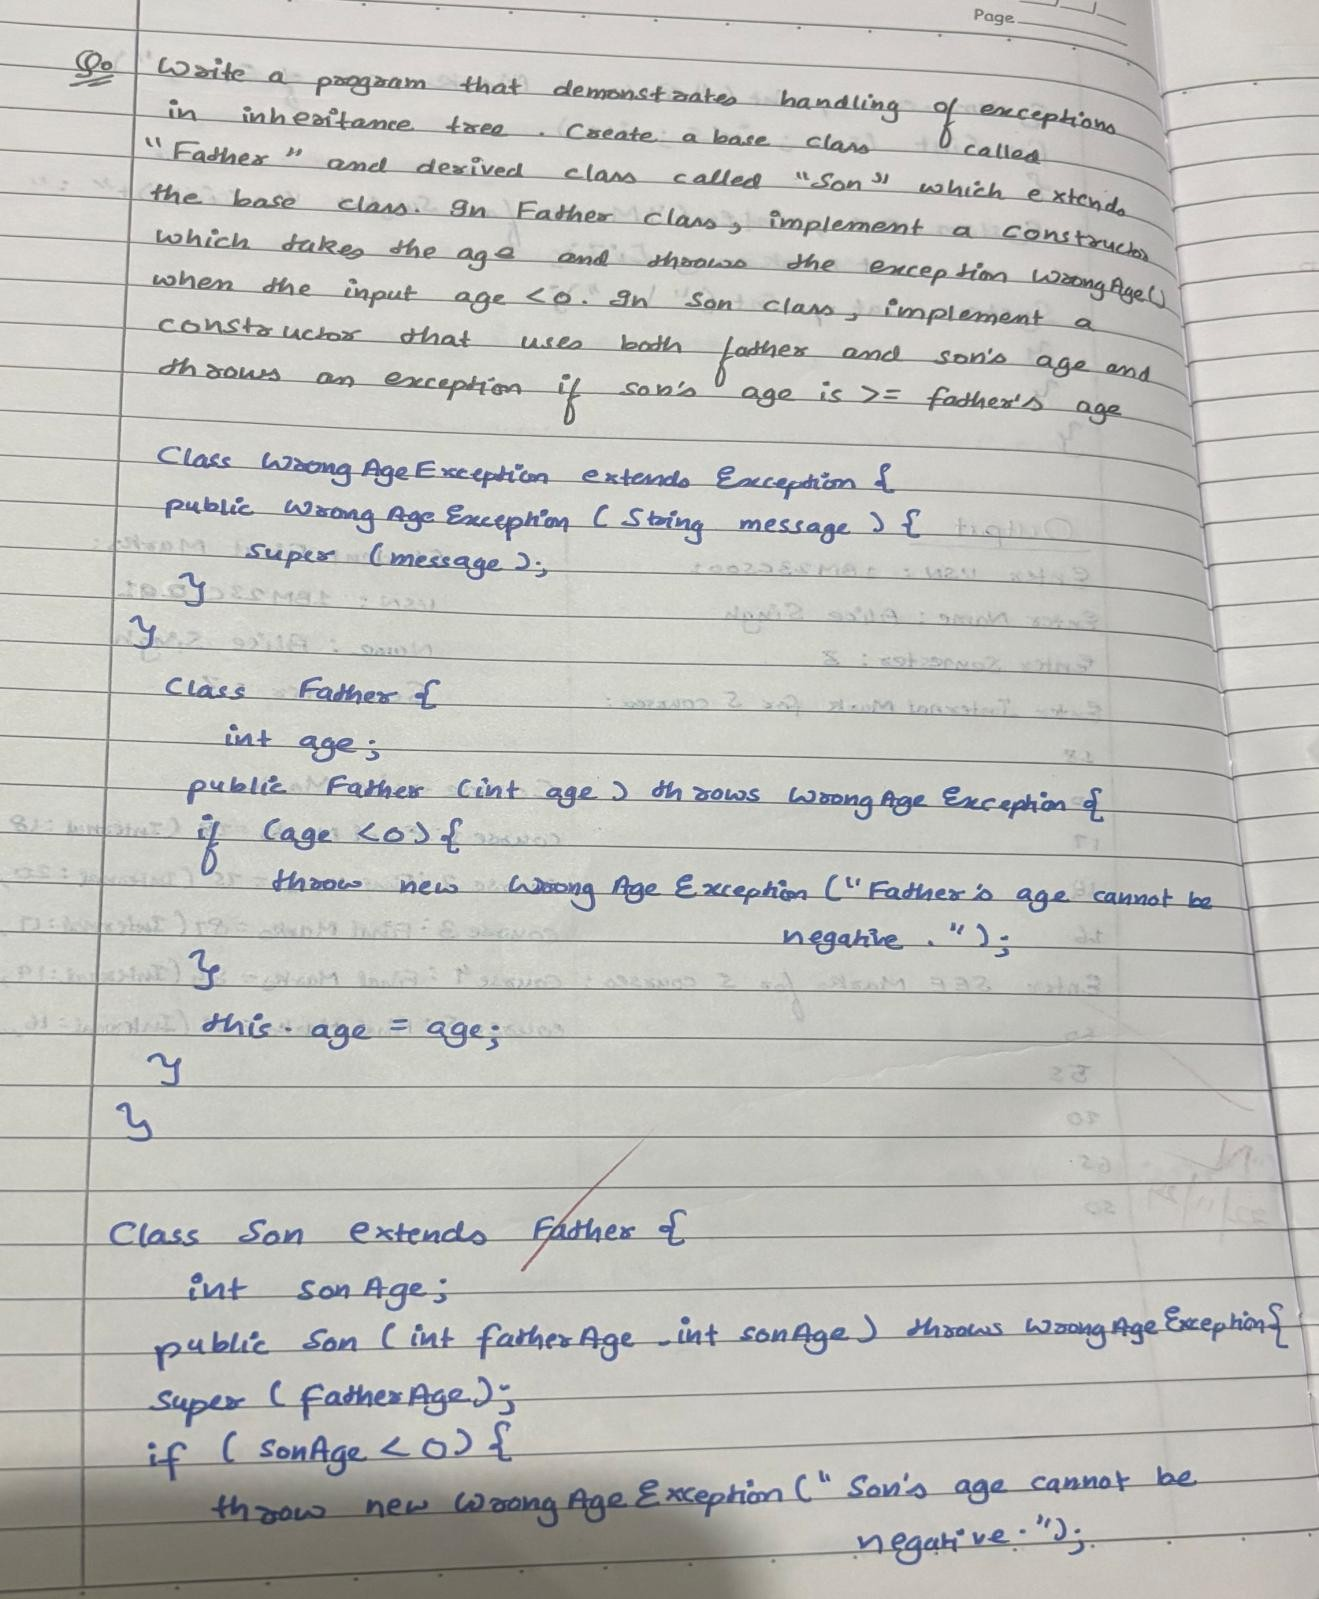 Page
Q. Write a program that demonstrates handling of exceptions
in inheritance tree. Create a base class called
"Father" and derived class called "Son" which extends
the base class. In Father class, implement a constructor
which takes the age and throws the exception WrongAge()
when the input age <0. In son class, implement a
constructor that uses both father and son's age and
throws an exception if son's age is >= father's age
Class WrongAgeException extends Exception {
public WrongAgeException (String message) {
super (message);
}
}
Class Father {
int age;
public Father (int age) throws WrongAgeException {
if (age <0) {
throw new WrongAgeException ("Father's age cannot be
negative.");
}
this.age = age;
}
}
Class Son extends Father {
int sonAge;
public Son (int fatherAge, int sonAge) throws WrongAgeException{
super (fatherAge);
if (sonAge <0) {
throw new WrongAgeException (" Son's age cannot be
negative.");